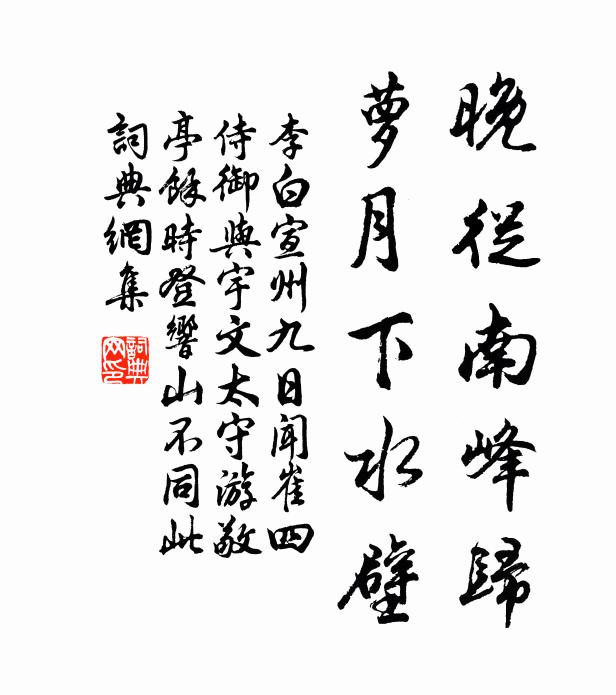 晚從南峰歸
蘿月下水壁
李白宣州九日聞崔四
侍御與宇文太守游敬
亭餘時登響山不同此
詞典網集
詞典
网印